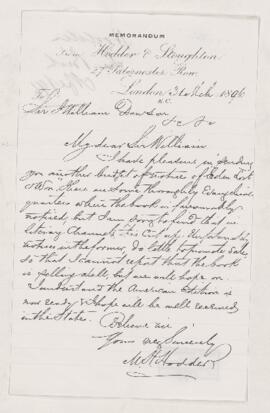 MEMORANDUM
From Hodder & Stoughton
27 Paternoster Row
E.C.
London, 31 Mch 1896
To
Sir J William Dawson
My dear Sir William
I have pleasure in sending
you another budget of notices of "Eden Lost
& Won". There are some thoroughly Evangelical
quarters where the book is favourably
noticed, but I am sorry to find that in
literary channels it is
notices in the former, do little to promote sales,
so that I cannot report that the book
is selling well, but we will hope on.
I understand the American Edition is
now ready & I hope will be well received
in the States.
Believe me
Yours very Sincerely
M H Hodder